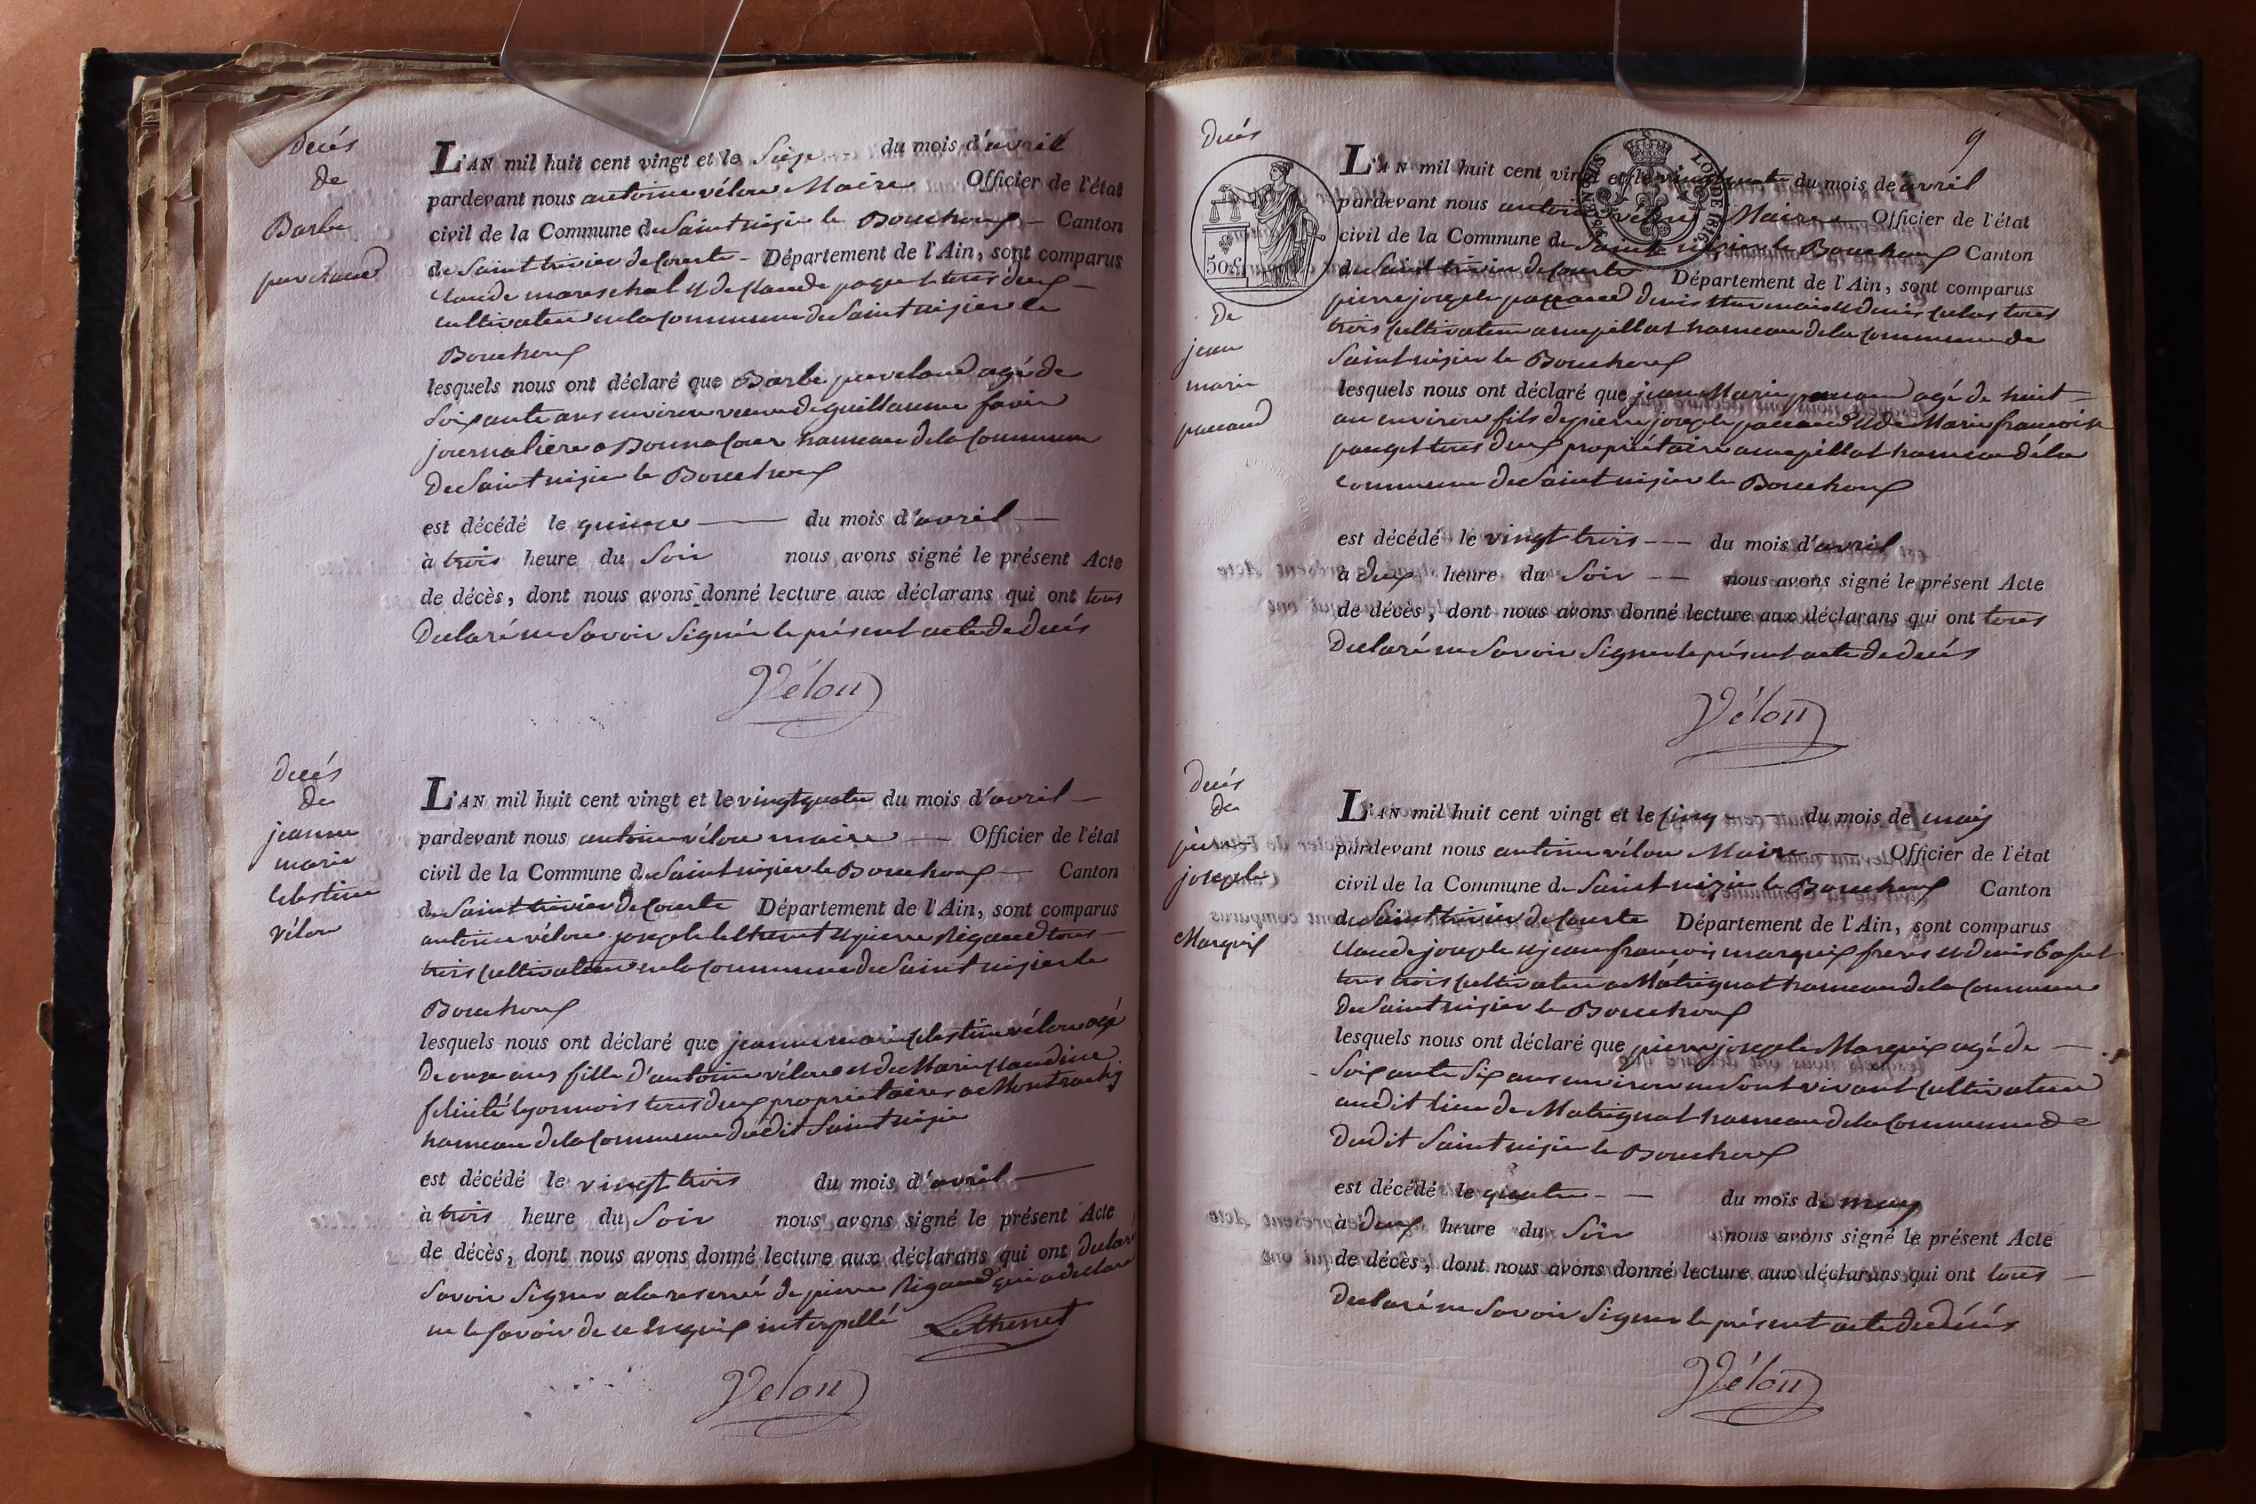 Decés
de
Barbe
L'AN mil huit cent vingt et le Sieze du mois d'avril
pardevant nous antoine vélon Maire Officier de l'état
civil de la Commune de Saint nizier le Bouchoux Canton
de Saint trivier de Courte Département de l'Ain, sont comparus
Claude mareschal et de Claude paquet tous deux
cultivateur en la Commune de Saint nizier le
Bouchoux
lesquels nous ont déclaré que Barbe agé de
Soixante ans environ veuve de guillaume favier
journaliere a Bonnacour hameau de la Commune
De Saint nizier le Bouchoux
est décédé le quinze du mois d'avril
à trois heure du Soir nous avons signé le présent Acte
de décès, dont nous avons donné lecture aux déclarans qui ont tous
Declaré ne Savoir Signé le présent acte de decés
Vélon
Decés
de
jeanne
marie
Celestine
vélon
L'AN mil huit cent vingt et le vingt quatre du mois d'avril
pardevant nous antoine vélon maire Officier de l'état
civil de la Commune de Saint nizier le Bouchoux Canton
de Saint trivier de Courte Département de l'Ain, sont comparus
antoine vélon joseph Lethenet et pierre Rigaud tous
trois cultivateur en la Commune de Saint nizier le
Bouchoux
lesquels nous ont déclaré que jeanne marie Celestine vélon agé
De onze ans fille d'antoine vélon et de Marie Claudine
felicité lyonnois tous deux propriétaires a
hameau de la Commune dudit Saint nizier
est décédé le vingt trois du mois d'avril
à trois heure du Soir nous avons signé le présent Acte
de décès, dont nous avons donné lecture aux déclarans qui ont declaré
Savoir Signer a la reservé de pierre Rigaud qui a declaré
ne le Savoir de ce Enquis interpellé Lethenet
Vélon
9
Decés
50 c
De
jean
marie
pacaud
L'AN mil huit cent vingt et le vingt quatre du mois de avril
pardevant nous antoine vélon Maire Officier de l'état
civil de la Commune de Saint nizier le Bouchoux Canton
de Saint trivier de Courte Département de l'Ain, sont comparus
pierre joseph pacaud denis et denis tous
trois cultivateur a hameau de la Commune de
Saint nizier le Bouchoux
lesquels nous ont déclaré que jean Marie pacaud agé de huit
an environ fils de pierre joseph pacaud et de Marie francoise
tous deux propriétaire a hameau de la
Commune de Saint nizier le Bouchoux
est décédé le vingt trois du mois d'avril
à deux heure du Soir nous avons signé le présent Acte
de décès, dont nous avons donné lecture aux déclarans qui ont tous
Declaré ne Savoir Signer le présent acte de decés
Vélon
Decés
de
pierre
joseph
Marquis
L'AN mil huit cent vingt et le Cinq du mois de may
pardevant nous antoine vélon Maire Officier de l'état
civil de la Commune de Saint nizier le Bouchoux Canton
de Saint trivier de Courte Département de l'Ain, sont comparus
Claude joseph et jean françois marquis freres et denis
tous trois cultivateur a Matrignat hameau de la Commune
De Saint nizier le Bouchoux
lesquels nous ont déclaré que pierre joseph Marquis agé de
Soixante Six ans environ en Sont vivant cultivateur
audit lieu de Matrignat hameau de la Commune de
dudit Saint nizier le Bouchoux
est décédé le quatre du mois de may
à deux heure du Soir nous avons signé le présent Acte
de décès, dont nous avons donné lecture aux déclarans qui ont tous
Declaré ne Savoir Signer le présent acte de decés
Vélon